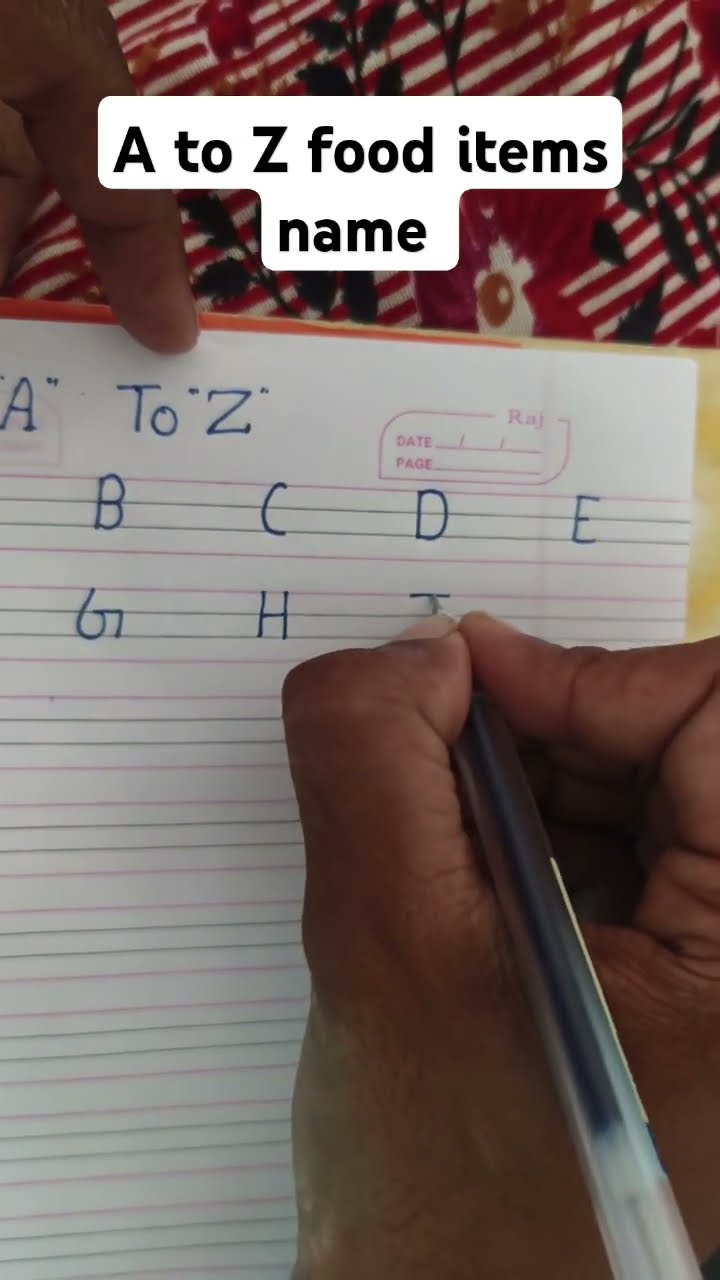 A to Z food items
name
"A" To "Z"
Raj
DATE / /
PAGE
B C D E
G H